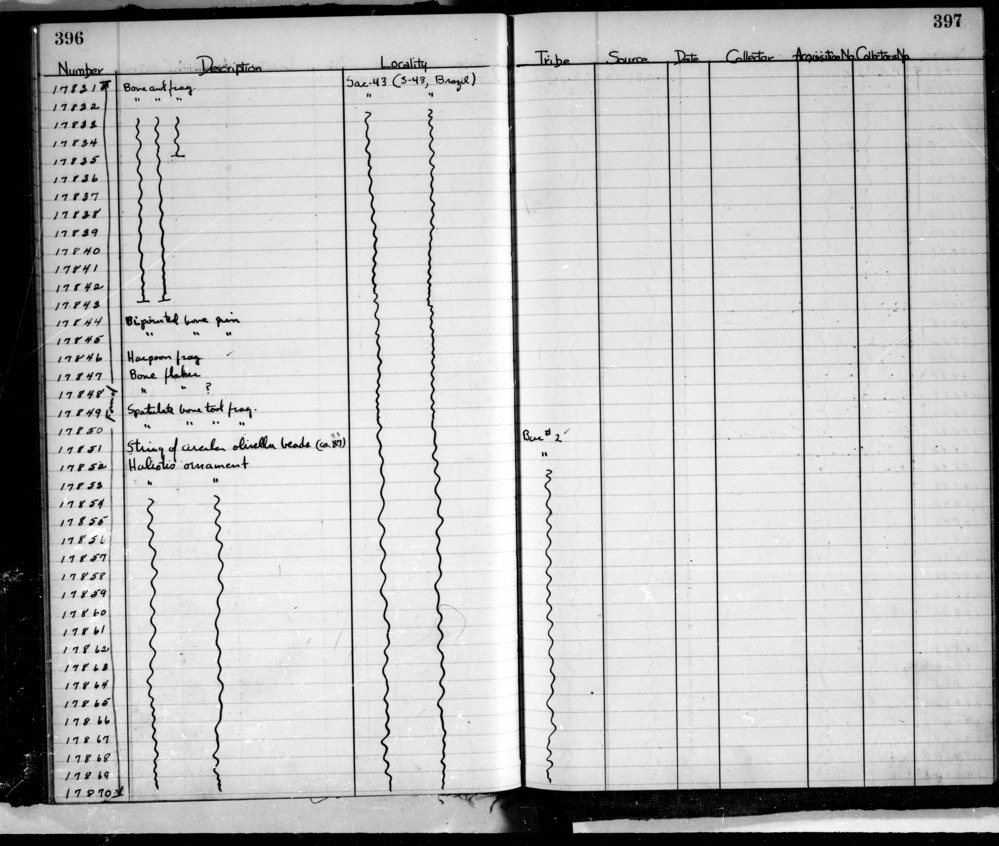 396
397
Number Description Locality Tribe Source Date Collector Acquisition No Collection No
17831 Bone awl frag. Sac-43 (S-43, Brazil)
17832 " " " " "
17833
17834
17835
17836
17837
17838
17839
17840
17841
17842
17843
17844 Bipointed bone pin
17845 " " "
17846 Harpoon frag
17847 Bone flaker
17848 " " ?
17849 Spatulate bone tool frag.
17850 " " " "
17851 String of circular olivella beads Bur # 2
17852 Haliotis ornament "
17853 " "
17854
17855
17856
17857
17858
17859
17860
17861
17862
17863
17864
17865
17866
17867
17868
17869
17870